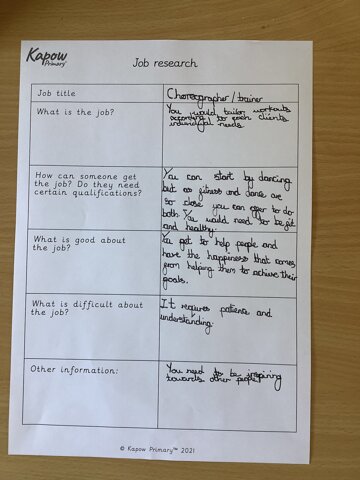 Kapow
Primary
Job research
Job title
Choreographer / trainer
What is the job?
You would tailor workouts
according to each clients
individual needs.
How can someone get
the job? Do they need
certain qualifications?
You can start by dancing
but as fitness and dance are
so close you can offer to do
both. You would need to be fit
and healthy.
What is good about
the job?
You get to help people and
have the happiness that comes
from helping them to achieve their
goals.
What is difficult about
the job?
It requires patiense and
understanding.
Other information:
You need to be inspiring
towards other people.
© Kapow Primary™ 2021